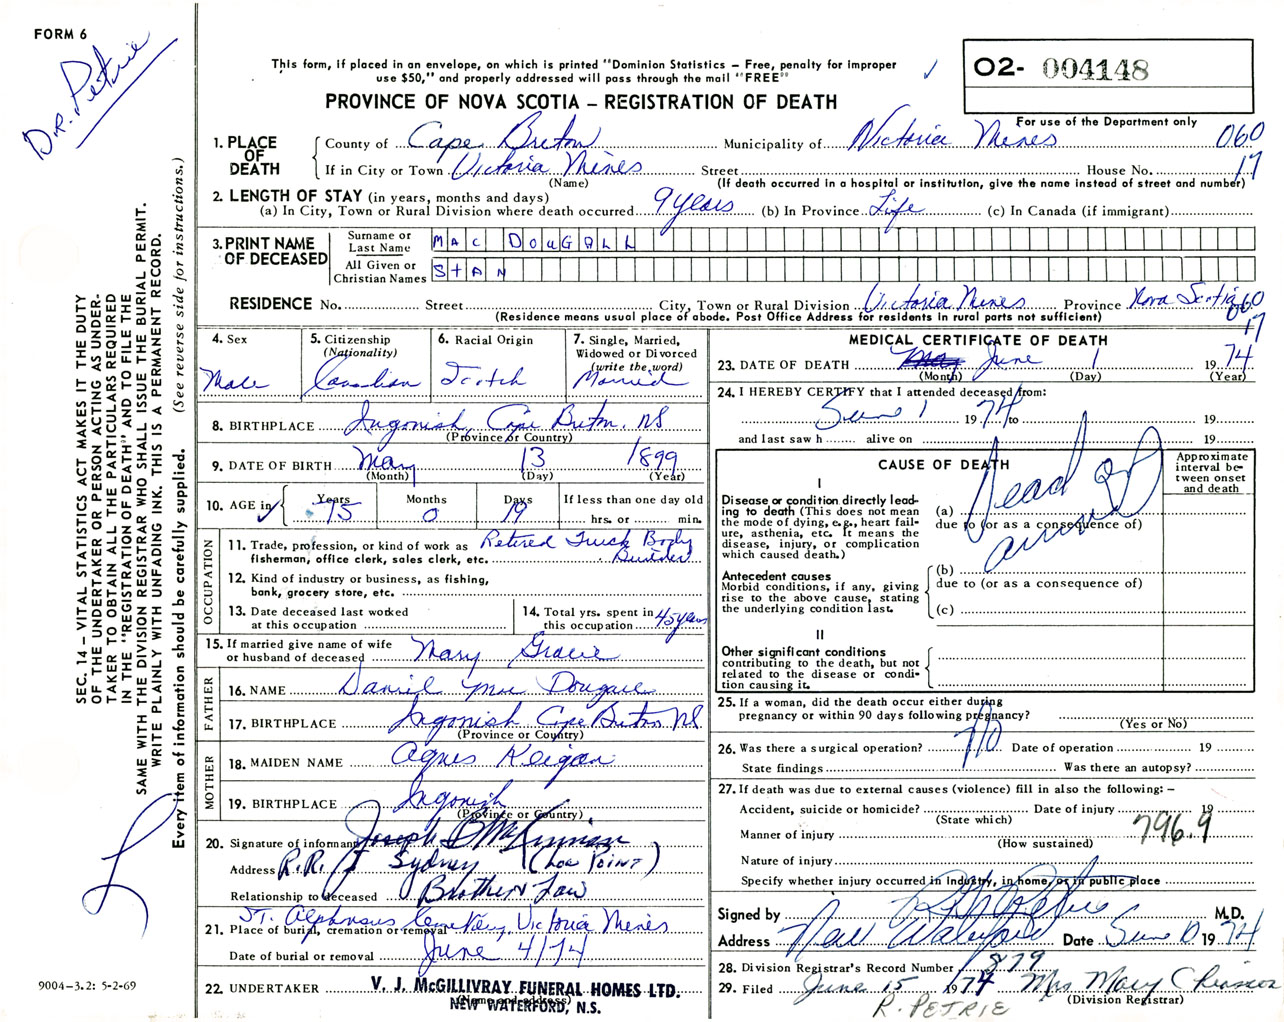 FORM 6
Dr. Petrie
This form, if placed in an envelope, on which is printed "Dominion Statistics – Free, penalty for improper
use $50," and properly addressed will pass through the mail "FREE"
O2- 004148
For use of the Department only
PROVINCE OF NOVA SCOTIA – REGISTRATION OF DEATH
1. PLACE OF DEATH
County of Cape Breton Municipality of Victoria Mines 060
If in City or Town Victoria Mines Street House No. 17
(Name) (If death occurred in a hospital or institution, give the name instead of street and number)
2. LENGTH OF STAY (in years, months and days)
(a) In City, Town or Rural Division where death occurred 9 years (b) In Province Life (c) In Canada (if immigrant)
3. PRINT NAME OF DECEASED
Surname or Last Name MAC DOUGALL
All Given or Christian Names STAN
RESIDENCE No. Street City, Town or Rural Division Victoria Mines Province Nova Scotia 060
(Residence means usual place of abode. Post Office Address for residents in rural parts not sufficient) 17
4. Sex
Male
5. Citizenship
(Nationality)
Canadian
6. Racial Origin
Scotch
7. Single, Married,
Widowed or Divorced
(write the word)
Married
8. BIRTHPLACE Ingonish, Cape Breton, NS
(Province or Country)
9. DATE OF BIRTH May 13 1899
(Month) (Day) (Year)
10. AGE in
Years 75
Months 0
Days 19
If less than one day old
hrs. or min.
OCCUPATION
11. Trade, profession, or kind of work as Retired Truck Body
fisherman, office clerk, sales clerk, etc. Builder
12. Kind of industry or business, as fishing,
bank, grocery store, etc.
13. Date deceased last worked
at this occupation
14. Total yrs. spent in
this occupation 45 years
15. If married give name of wife
or husband of deceased Mary Gracie
FATHER
16. NAME Daniel Mac Dougall
17. BIRTHPLACE Ingonish Cape Breton NS
(Province or Country)
MOTHER
18. MAIDEN NAME Agnes
19. BIRTHPLACE Ingonish
(Province or Country)
20. Signature of informant Joseph McKinnon
Address R.R. 1 Sydney (Low Point)
Relationship to deceased Brother N Law
21. Place of burial, cremation or removal St. Alphonsus Cemetery, Victoria Mines
Date of burial or removal June 4/74
22. UNDERTAKER V. J. McGILLIVRAY FUNERAL HOMES LTD.
(Name and address)
NEW WATERFORD, N.S.
MEDICAL CERTIFICATE OF DEATH
23. DATE OF DEATH May June 1 1974
(Month) (Day) (Year)
24. I HEREBY CERTIFY that I attended deceased from:
June 1 1974 to 19
and last saw h alive on 19
CAUSE OF DEATH
Approximate
interval be-
tween onset
and death
I
Disease or condition directly lead-
ing to death (This does not mean
the mode of dying, e.g., heart fail-
ure, asthenia, etc. It means the
disease, injury, or complication
which caused death.)
(a) Dead on
due to (or as a consequence of)
arrival
Antecedent causes
Morbid conditions, if any, giving
rise to the above cause, stating
the underlying condition last.
(b)
due to (or as a consequence of)
(c)
II
Other significant conditions
contributing to the death, but not
related to the disease or condi-
tion causing it.
25. If a woman, did the death occur either during
pregnancy or within 90 days following pregnancy?
(Yes or No)
26. Was there a surgical operation? No Date of operation 19
State findings Was there an autopsy?
27. If death was due to external causes (violence) fill in also the following: –
Accident, suicide or homicide? Date of injury 19
(State which)
796.9
Manner of injury
(How sustained)
Nature of injury
Specify whether injury occurred in Industry, in home, or in public place
Signed by Petrie M.D.
Address New Waterford Date June 10 1974
28. Division Registrar's Record Number 1879
29. Filed June 15 1974 Mrs Mary Chiasson
(Division Registrar)
R. PETRIE
SEC. 14 – VITAL STATISTICS ACT MAKES IT THE DUTY
OF THE UNDERTAKER OR PERSON ACTING AS UNDER-
TAKER TO OBTAIN ALL THE PARTICULARS REQUIRED
IN THE "REGISTRATION OF DEATH" AND TO FILE THE
SAME WITH THE DIVISION REGISTRAR WHO SHALL ISSUE THE BURIAL PERMIT.
WRITE PLAINLY WITH UNFADING INK. THIS IS A PERMANENT RECORD.
Every item of information should be carefully supplied. (See reverse side for instructions.)
9004–3.2: 5-2-69